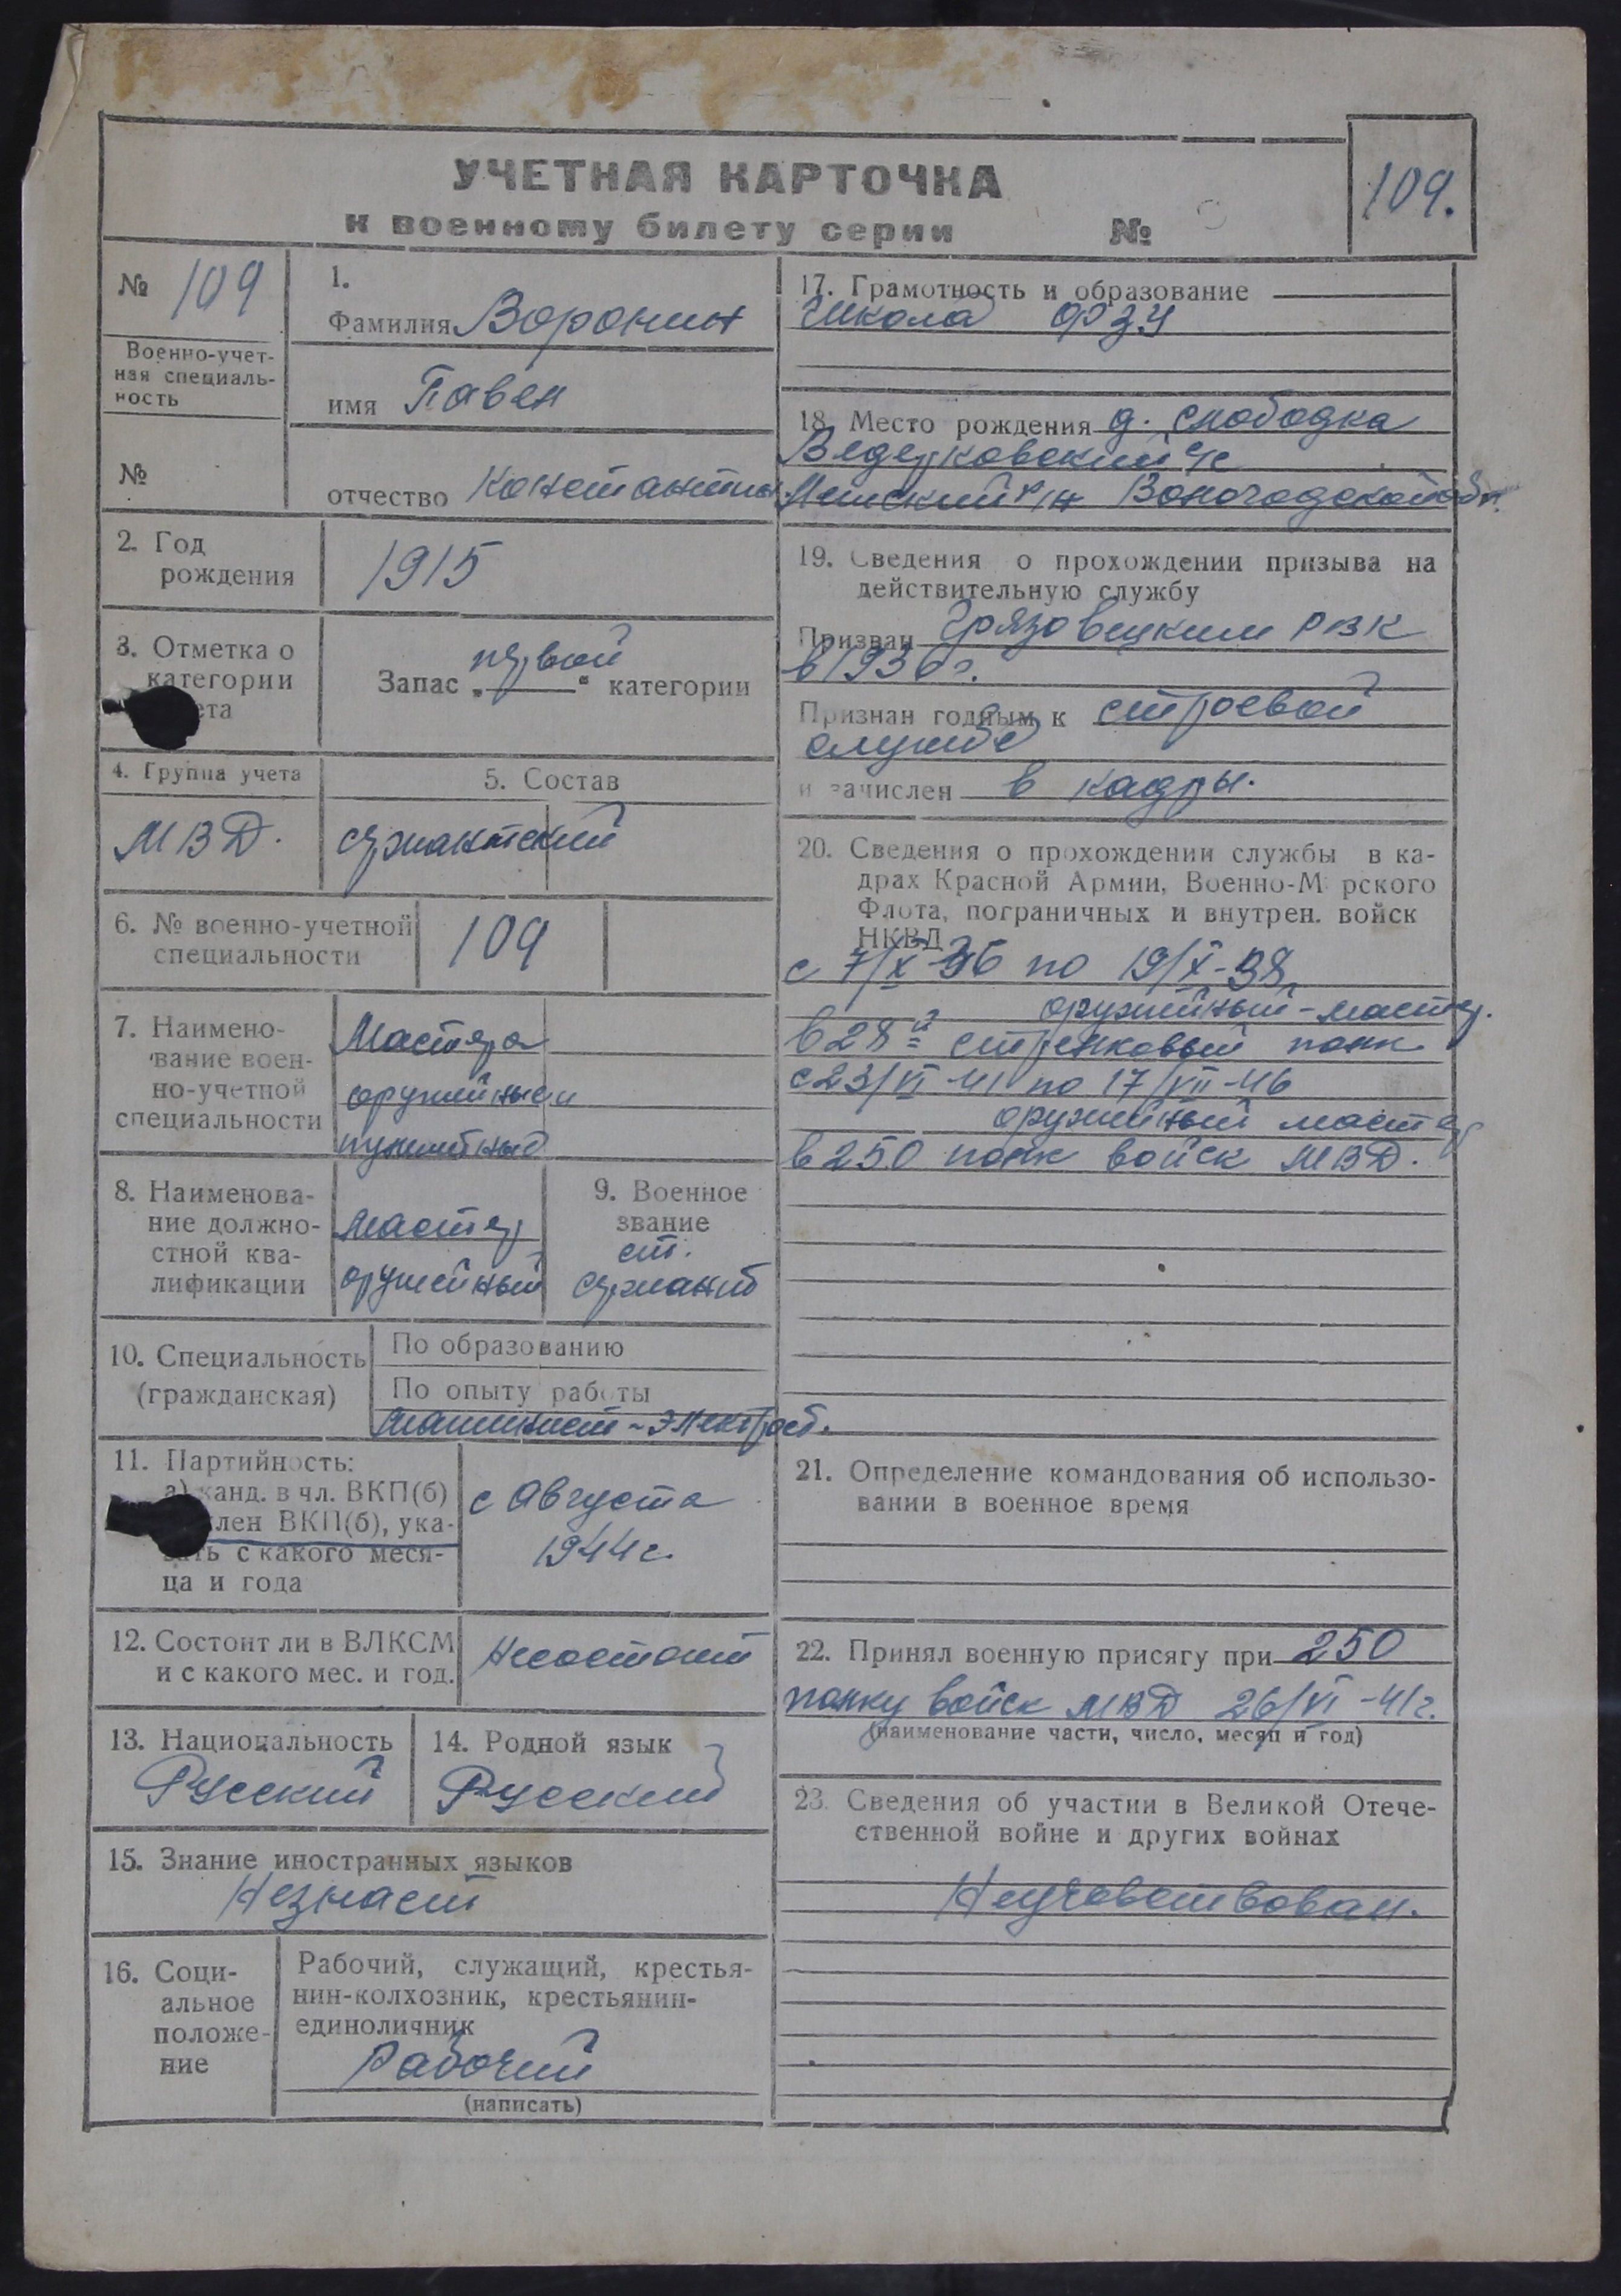 УЧЕТНАЯ КАРТОЧКА
к военному билету серии №
109.
№ 109
Военно-учет-
ная специаль-
ность
№
1.
Фамилия Воронин
имя Павел
отчество Константин.
2. Год
рождения
1915
3. Отметка о
категории
ета
Запас „первой“ категории
4. Группа учета
МВД.
5. Состав
сержантский
6. № военно-учетной
специальности
109
7. Наимено-
вание воен-
но-учетной
специальности
Мастера
оружейные и
пулеметные
8. Наименова-
ние должно-
стной ква-
лификации
мастер
оружейный
9. Военное
звание
ст.
сержант
10. Специальность
(гражданская)
По образованию
По опыту работы
машинист-электрост.
11. Партийность:
а) канд. в чл. ВКП(б)
член ВКП(б), ука-
зать с какого меся-
ца и года
с Августа
1944 г.
12. Состоит ли в ВЛКСМ
и с какого мес. и год.
Несостоит
13. Национальность
Русский
14. Родной язык
Русский
15. Знание иностранных языков
Незнает
16. Соци-
альное
положе-
ние
Рабочий, служащий, крестья-
нин-колхозник, крестьянин-
единоличник
Рабочий
(написать)
17. Грамотность и образование
Школа ФЗУ
18. Место рождения д. Слободка
Ведерковский с/с
р-н Вологодской обл.
19. Сведения о прохождении призыва на
действительную службу
Призван Грязовецким РВК
в 1936 г.
Признан годным к строевой
службе
и зачислен в кадры.
20. Сведения о прохождении службы в ка-
драх Красной Армии, Военно-М рского
Флота, пограничных и внутрен. войск
НКВД
с 7/X-36 по 19/X-38
оружейный-мастер.
в 28й стрелковый полк
с 23/VI-41 по 17/VII-46
оружейный мастер
в 250 полк войск МВД.
21. Определение командования об использо-
вании в военное время
22. Принял военную присягу при 250
полку войск МВД 26/VI-41г.
(наименование части, число, месяц и год)
23. Сведения об участии в Великой Отече-
ственной войне и других войнах
Неучавствовал.